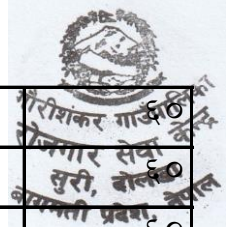 गौरीशंकर गाउँपालिका
रोजगार सेवा केन्द्र
सुरी, दोलखा
बागमती प्रदेश, नेपाल
६०
६०
६०